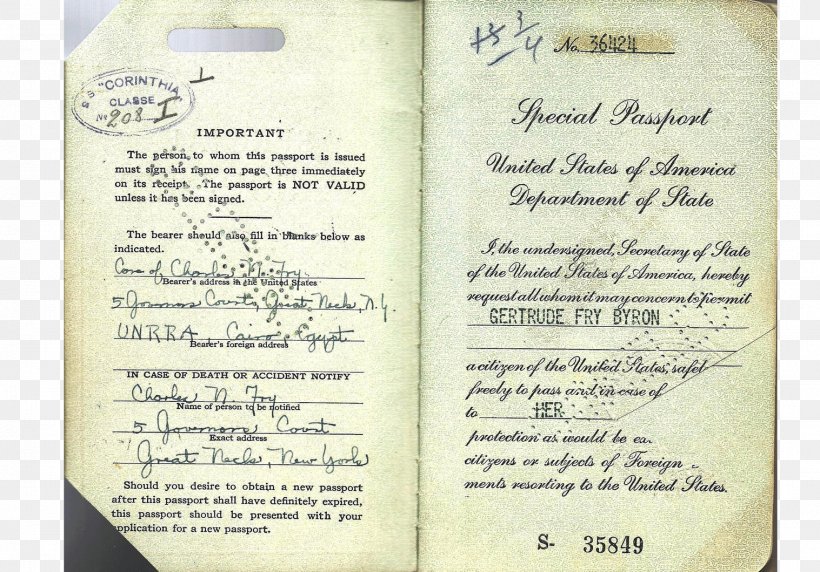 S.S. "CORINTHIA"
CLASSE I
No 208
IMPORTANT
The person to whom this passport is issued
must sign his name on page three immediately
on its receipt. The passport is NOT VALID
unless it has been signed.
The bearer should also fill in blanks below as
indicated.
Care of Charles N. Fry.
Bearer's address in the United States
5 Governors Court, Great Neck, N.Y.
UNRRA Cairo, Egypt
Bearer's foreign address
IN CASE OF DEATH OR ACCIDENT NOTIFY
Charles N. Fry
Name of person to be notified
5 Governors Court
Exact address
Great Neck, New York
Should you desire to obtain a new passport
after this passport shall have definitely expired,
this passport should be presented with your
application for a new passport.
3/4
No. 36424
Special Passport
United States of America
Department of State
I, the undersigned, Secretary of State
of the United States of America, hereby
request all whom it may concern to permit
GERTRUDE FRY BYRON
a citizen of the United States, safel
freely to pass and in case of
to HER
protection as would be ex
citizens or subjects of Foreign
ments resorting to the United States.
S- 35849